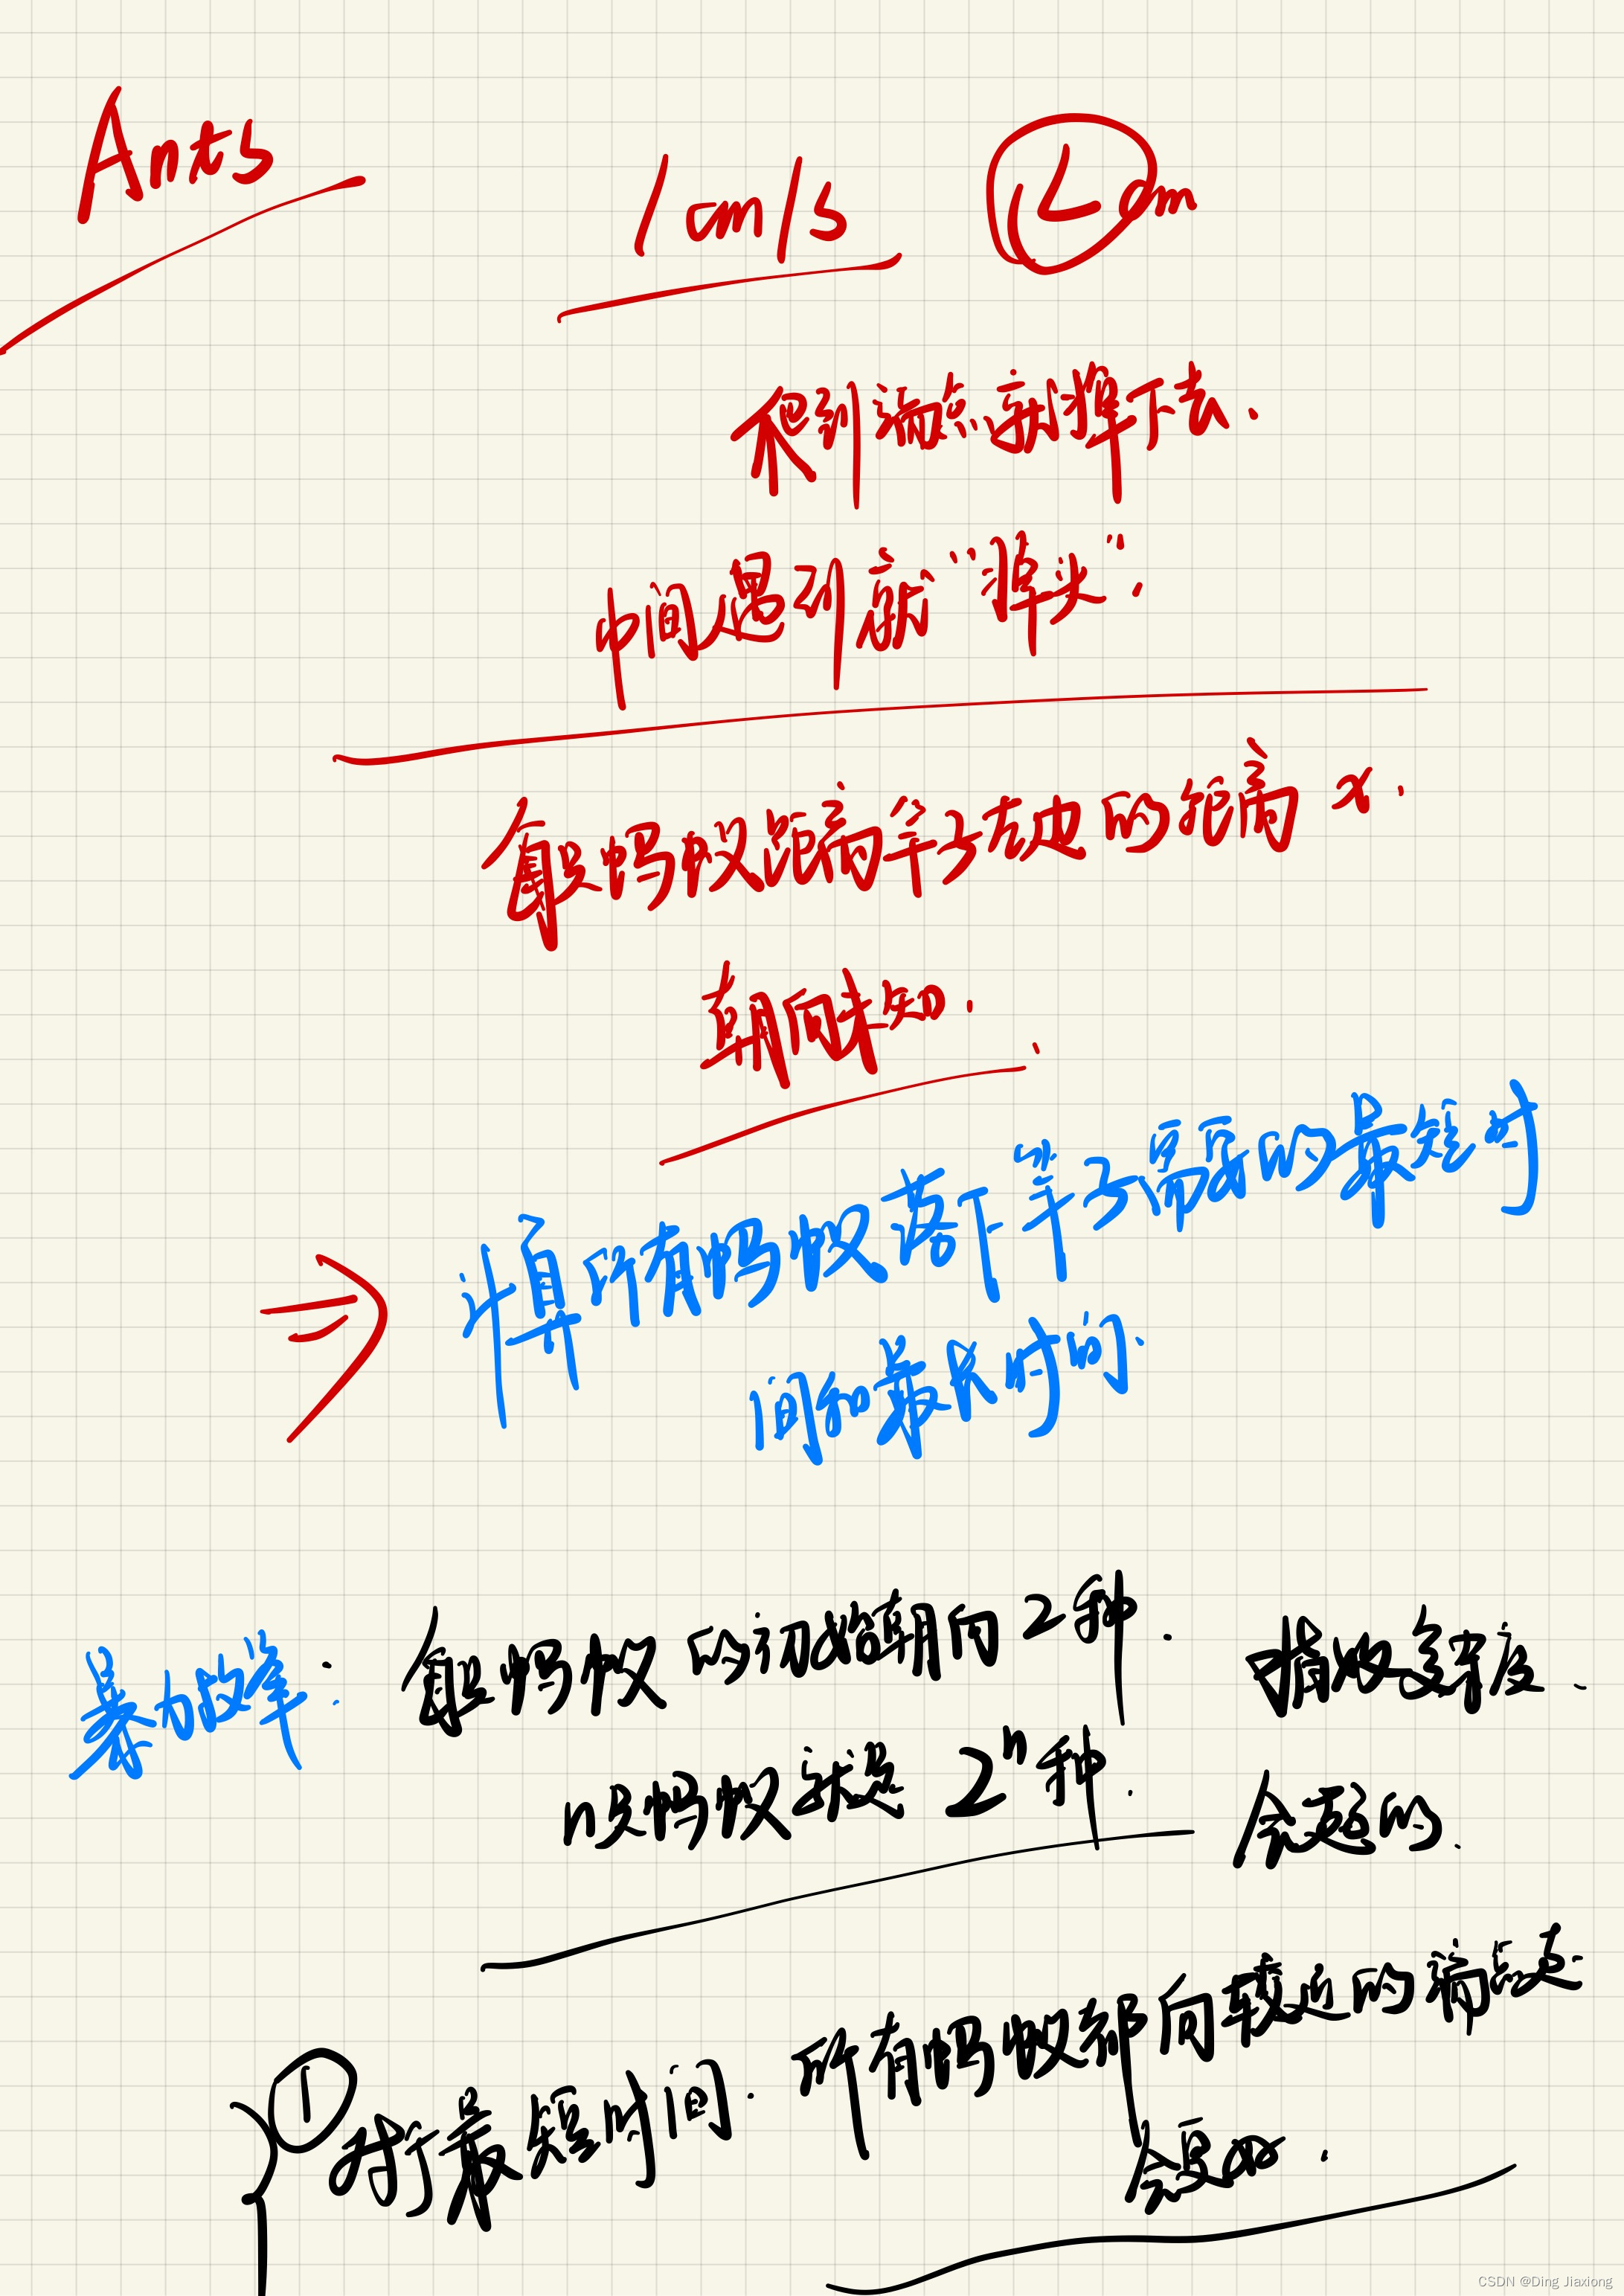 Ants
1 cm/s L cm
爬到端点就掉下去.
中间遇到就“掉头”.
每只蚂蚁距离竿子左边的距离 x.
朝向未知.
⇒ 计算所有蚂蚁落下竿子需要的最短时
间和最长时间.
暴力效率: 每只蚂蚁的初始朝向 2种. 指数复杂度.
n只蚂蚁就是 2ⁿ种. 会超时.
① 对于最短时间. 所有蚂蚁都向较近的端点走
会更
CSDN @Ding Jiaxiong